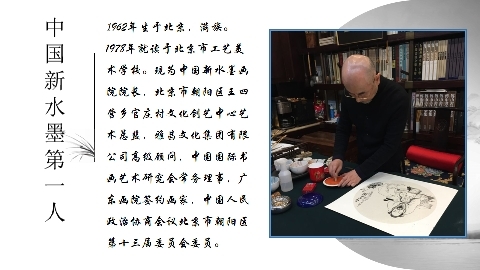 中国新水墨第一人
1962年生于北京，满族。
1978年就读于北京市工艺美
术学校。现为中国新水墨画
院院长，北京市朝阳区王四
营乡官庄村文化创艺中心艺
术总监，雅昌文化集团有限
公司高级顾问，中国国际书
画艺术研究会常务理事，广
东画院签约画家，中国人民
政治协商会议北京市朝阳区
第十三届委员会委员。